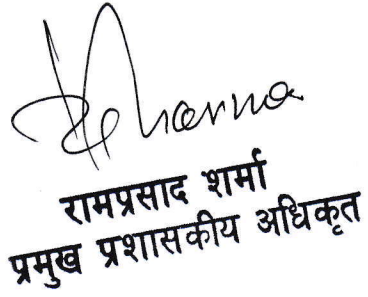 Sharma
रामप्रसाद शर्मा
प्रमुख प्रशासकीय अधिकृत